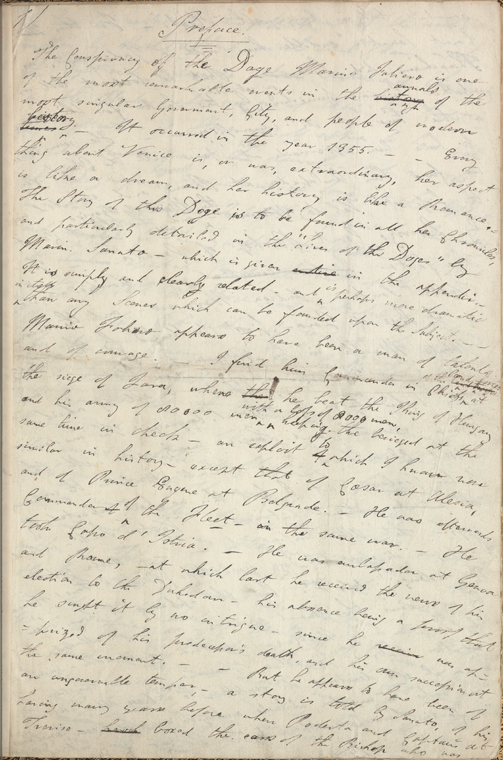 Preface.
The Conspiracy of the Doge Marino Faliero is one
of the most remarkable events in the annals of the
most singular Government, City, and people of modern
history — It occurred in the year 1355. — — Every
thing about Venice is, or was, extraordinary, her aspect
is like a dream, and her history is like a Romance. —
The Story of this Doge is to be found in all her Chronicles
and particularly detailed in the "Lives of the Doges" by
Marin Sanuto — which is given in the appendix. —
It is simply and clearly related — and is perhaps more dramatic
in itself
than any Scenes which can be founded upon the Subject. —
Marino Faliero appears to have been a man of talents
and of courage. I find him Commander in Chief at
the siege of Zara, where he beat the King of Hungary
with a loss of 8000 men,
and his army of 80000 men keeping the besieged at the
same time in check — an exploit to which I know none
similar in history — except that of Caesar at Alesia,
and of Prince Eugene at Belgrade. — He was afterwards
Commander of the Fleet — in the same war. — He
took Capo d'Istria. — He was ambassador at Genoa
and Rome, — at which last he received the news of his
election to the Dukedom — his absence being a proof that
he sought it by no intrigue — since he was ap-
-prized of his predecessor's death, and his own succession at
the same moment. — — But he appears to have been of
an ungovernable temper. — a story is told by Sanuto of his
having many years before when Podesta and Captain at
Treviso — boxed the ears of the Bishop who was